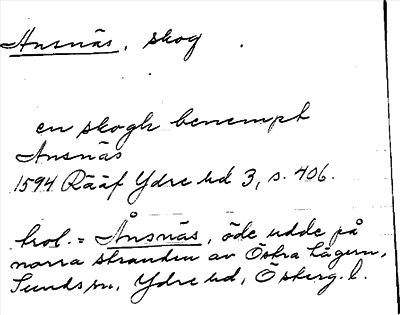 Ansnäs, skog
en skogh benempt
Ansnäs
1594 Rääf Ydre hd 3, s. 406.
trol. = Ånsnäs, öde udde på
norra stranden av Östra Lägern,
Sunds sn, Ydre hd, Österg. l.